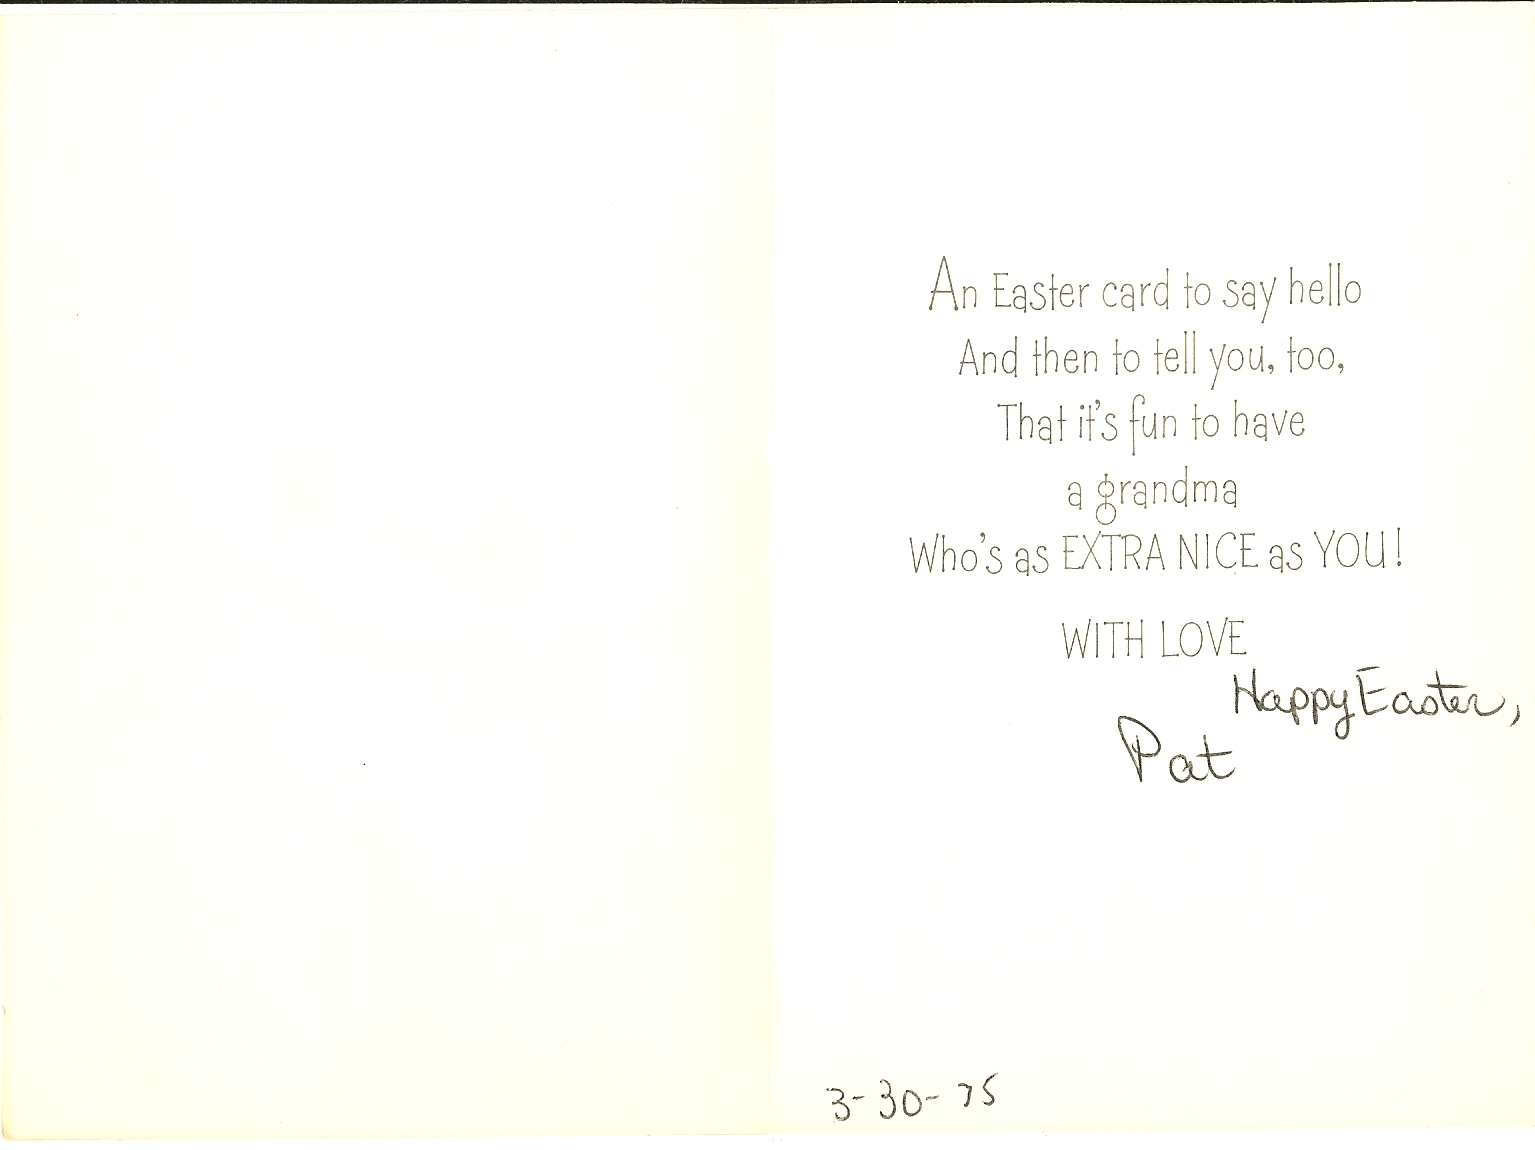 An Easter card to say hello
And then to tell you, too,
That it's fun to have
a grandma
Who's as EXTRA NICE as YOU!
WITH LOVE
Happy Easter,
Pat
3-30-75